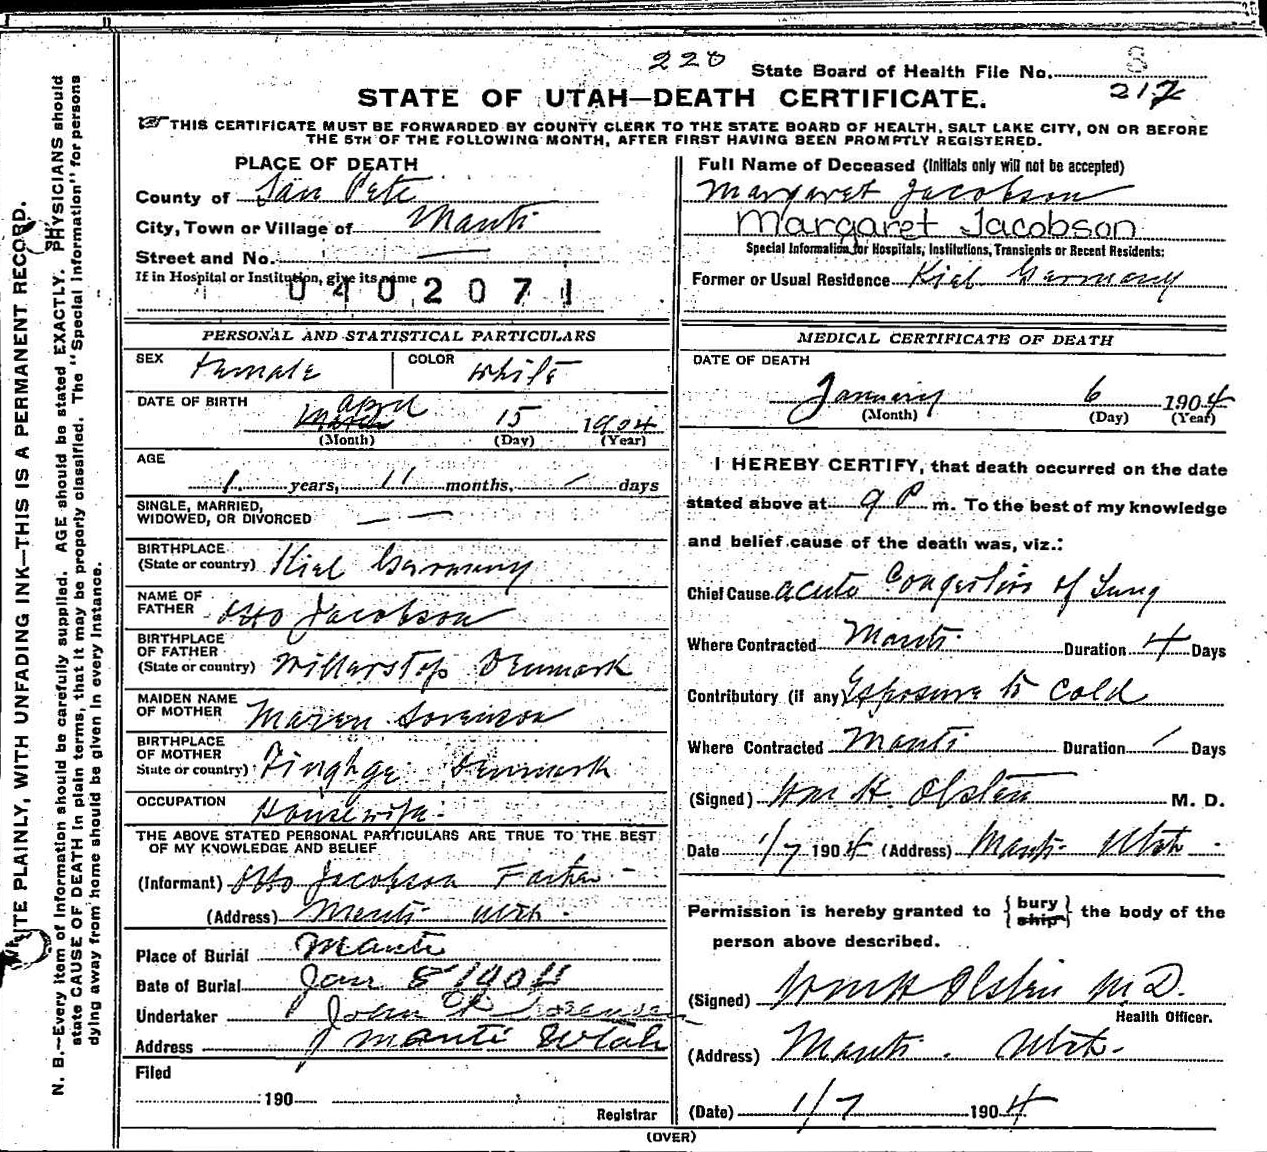 220 State Board of Health File No. 8
217
STATE OF UTAH—DEATH CERTIFICATE.
THIS CERTIFICATE MUST BE FORWARDED BY COUNTY CLERK TO THE STATE BOARD OF HEALTH, SALT LAKE CITY, ON OR BEFORE
THE 5TH OF THE FOLLOWING MONTH, AFTER FIRST HAVING BEEN PROMPTLY REGISTERED.
PLACE OF DEATH
County of San Pete
City, Town or Village of Manti
Street and No. —
If in Hospital or Institution, give its name
0402071
PERSONAL AND STATISTICAL PARTICULARS
SEX Female COLOR White
DATE OF BIRTH April March 15 1904
(Month) (Day) (Year)
AGE
1 years, 11 months, — days
SINGLE, MARRIED,
WIDOWED, OR DIVORCED — —
BIRTHPLACE
(State or country) Kiel Germany
NAME OF
FATHER Otto Jacobson
BIRTHPLACE
OF FATHER
(State or country) Willerstop Denmark
MAIDEN NAME
OF MOTHER Maren Sorenson
BIRTHPLACE
OF MOTHER
State or country) Denmark
OCCUPATION Housewife.
THE ABOVE STATED PERSONAL PARTICULARS ARE TRUE TO THE BEST
OF MY KNOWLEDGE AND BELIEF
(Informant) Otto Jacobson Father
(Address) Manti Utah.
Place of Burial Manti
Date of Burial Jan 8 1904
Undertaker John Sorensen
Address Manti Utah
Filed
190
Registrar
Full Name of Deceased (Initials only will not be accepted)
Margaret Jacobson
Margaret Jacobson
Special Information for Hospitals, Institutions, Transients or Recent Residents:
Former or Usual Residence Kiel Germany
MEDICAL CERTIFICATE OF DEATH
DATE OF DEATH
January 6 1904
(Month) (Day) (Year)
I HEREBY CERTIFY, that death occurred on the date
stated above at 9 P m. To the best of my knowledge
and belief cause of the death was, viz.:
Chief Cause acute Congestion of Lung
Where Contracted Manti. Duration 4 Days
Contributory (if any) Exposure to Cold
Where Contracted Manti Duration / Days
(Signed) Wm H. Olsten M. D.
Date 1/7 1904 (Address) Manti Utah.
Permission is hereby granted to { bury ship } the body of the
person above described.
(Signed) Wm H Olsten M.D.
Health Officer.
(Address) Manti. Utah.
(Date) 1/7 1904
(OVER)
WRITE PLAINLY, WITH UNFADING INK—THIS IS A PERMANENT RECORD.
N. B.—Every item of information should be carefully supplied. AGE should be stated EXACTLY. PHYSICIANS should
state CAUSE OF DEATH in plain terms, that it may be properly classified. The "Special Information" for persons
dying away from home should be given in every instance.